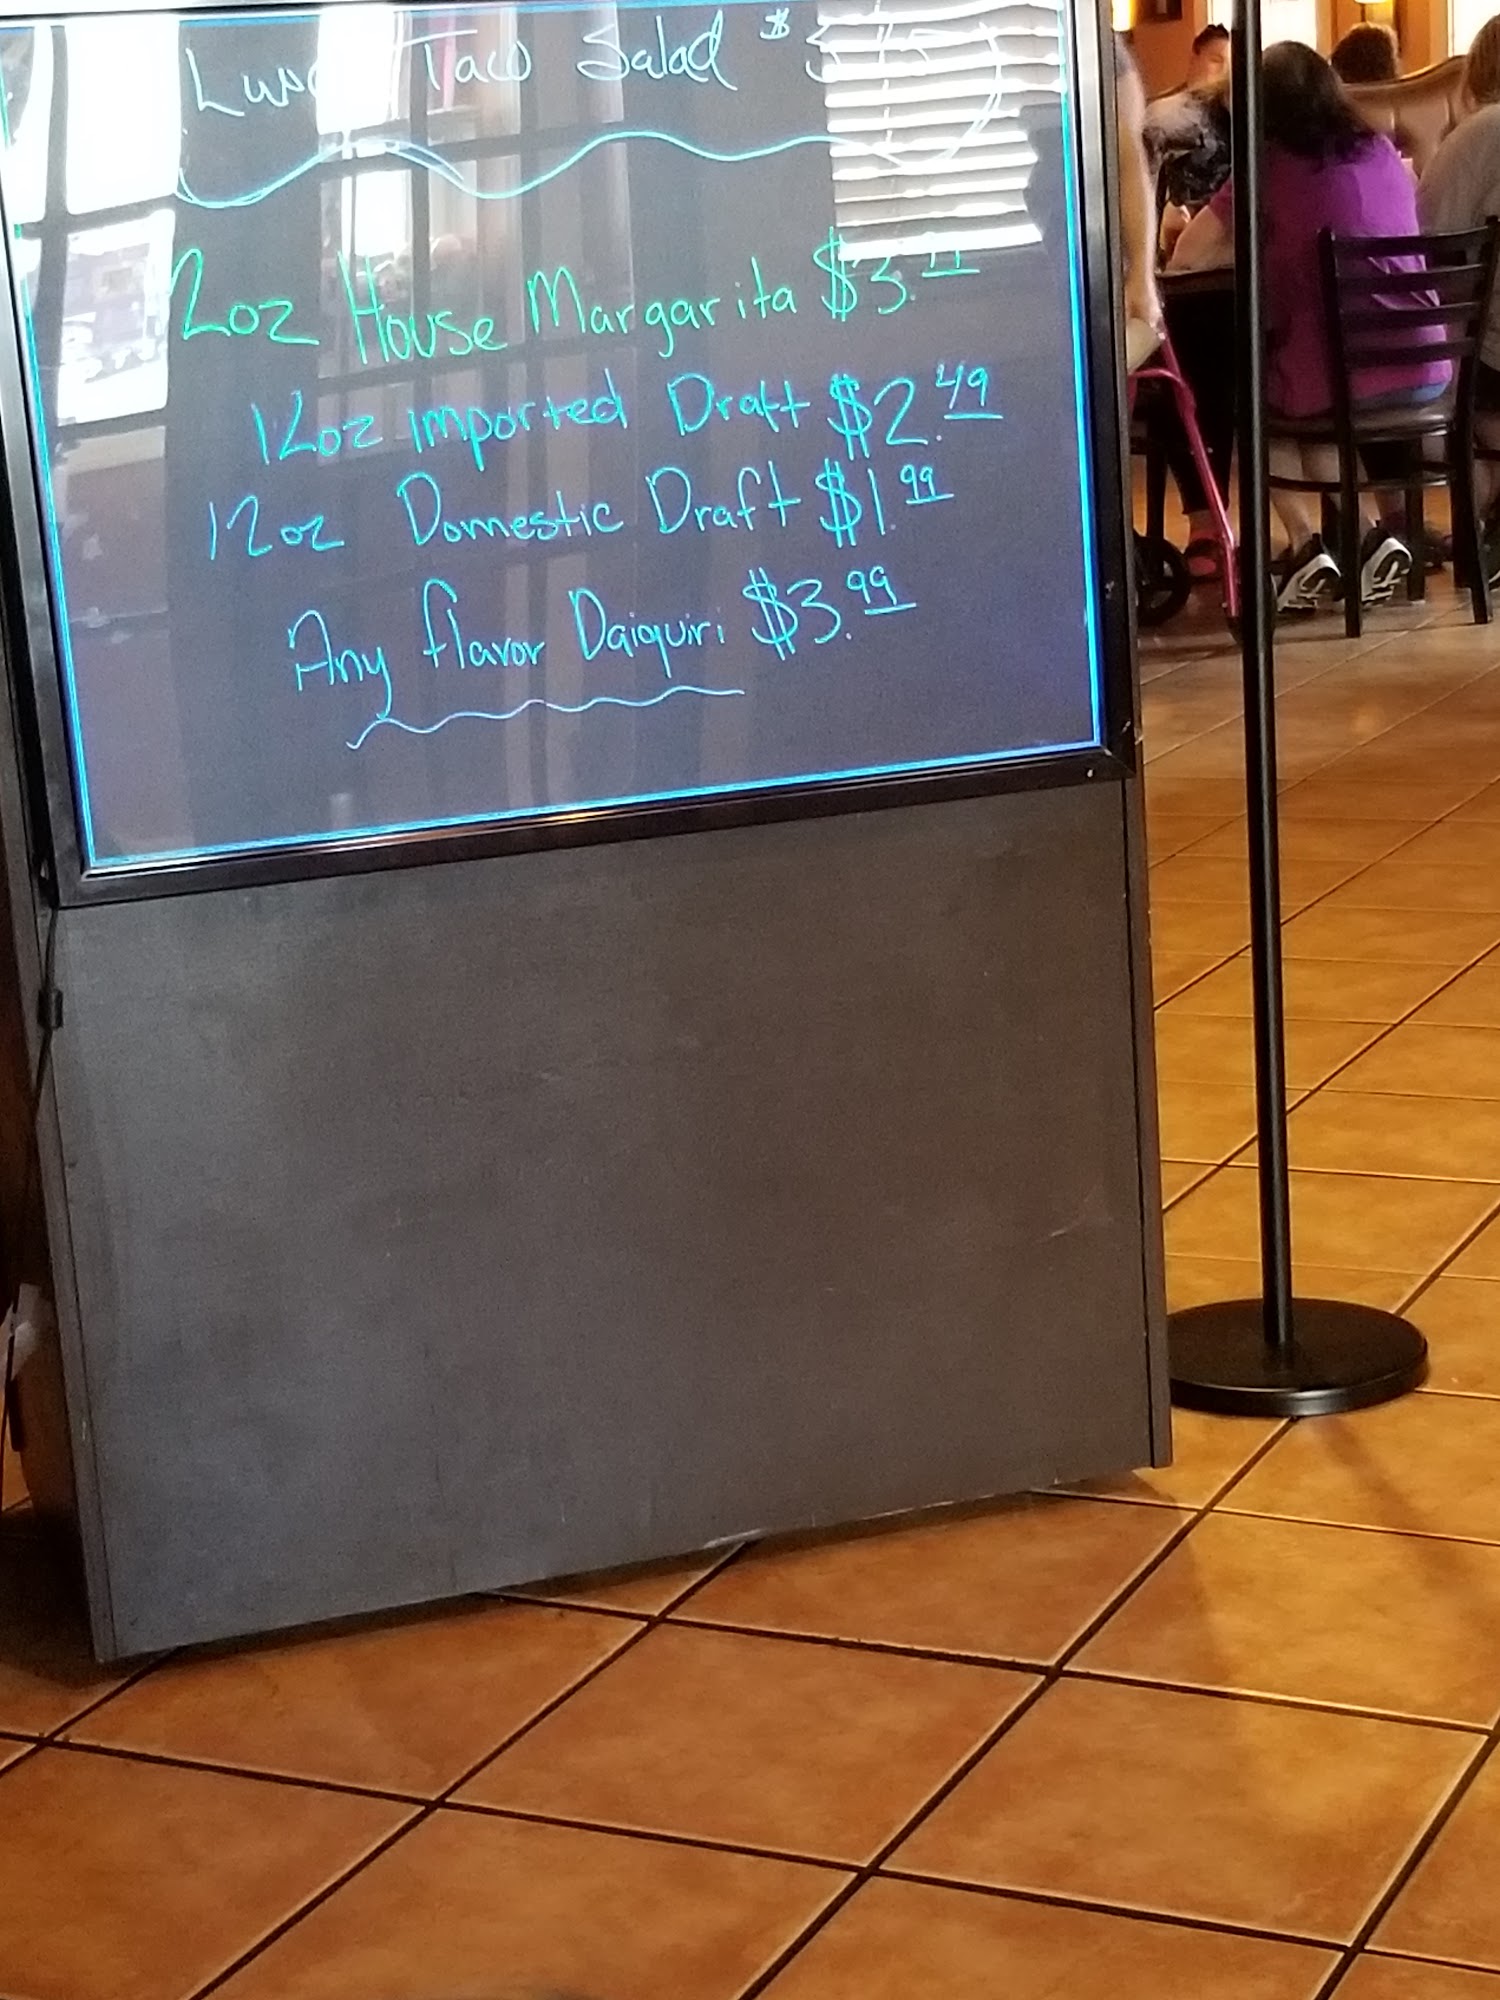 Taco Salad $
House Margarita $3.
12oz imported Draft $2.49
12oz Domestic Draft $1.99
Any flavor Daiquiri $3.99